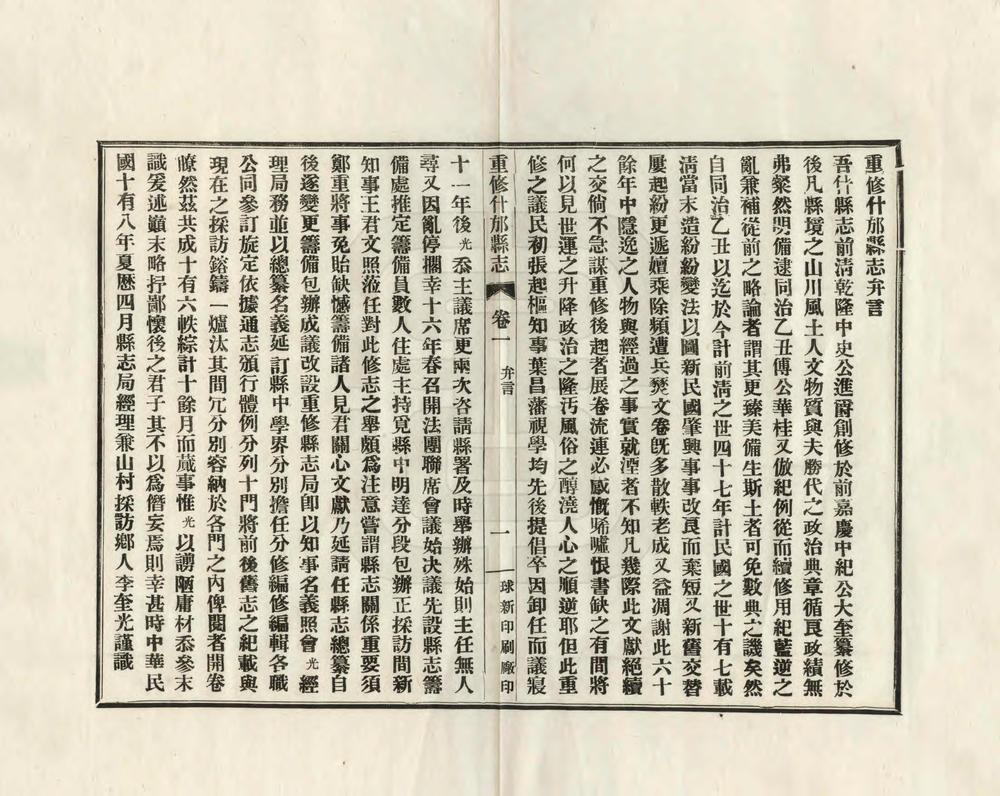 重修什邡縣志弁言
吾什縣志前淸乾隆中史公進爵創修於前嘉慶中紀公大奎纂修於
後凡縣境之山川風土人文物質與夫勝代之政治典章循良政績無
弗粲然明備逮同治乙丑傅公華桂又倣紀例從而續修用紀藍逆之
亂兼補從前之略論者謂其更臻美備生斯土者可免數典之譏矣然
自同治乙丑以迄於今計前淸之世四十七年計民國之世十有七載
淸當末造紛紛變法以圖新民國肇興事事改良而棄短又新舊交替
屢起紛更遞嬗乘除頻遭兵燹文卷旣多散軼老成又益凋謝此六十
餘年中隱逸之人物與經過之事實就湮者不知凡幾際此文獻絕續
之交倘不急謀重修後起者展卷流連必感慨唏噓恨書缺之有間將
何以見世運之升降政治之隆汚風俗之醇澆人心之順逆耶但此重
修之議民初張起樞知事葉昌藩視學均先後提倡卒因卸任而議寢
重修什邡縣志 卷一 弁言 一 球新印刷廠印
十一年後光忝主議席更兩次咨請縣署及時舉辦殊始則主任無人
尋又因亂停擱幸十六年春召開法團聯席會議始决議先設縣志籌
備處推定籌備員數人住處主持覓縣中明達分段包辦正採訪間新
知事王君文照蒞任對此修志之舉頗爲注意嘗謂縣志關係重要須
鄭重將事免貽缺憾籌備諸人見君關心文獻乃延請任縣志總纂自
後遂變更籌備包辦成議改設重修縣志局卽以知事名義照會光經
理局務並以總纂名義延訂縣中學界分別擔任分修編修編輯各職
公同參訂旋定依據通志頒行體例分列十門將前後舊志之紀載與
現在之採訪鎔鑄一爐汰其間冗分別容納於各門之內俾閱者開卷
瞭然茲共成十有六帙綜計十餘月而蕆事惟光以謭陋庸材忝參末
議爰述巔末略抒鄙懷後之君子其不以爲僭妄焉則幸甚時中華民
國十有八年夏曆四月縣志局經理兼山村採訪鄉人李奎光謹識